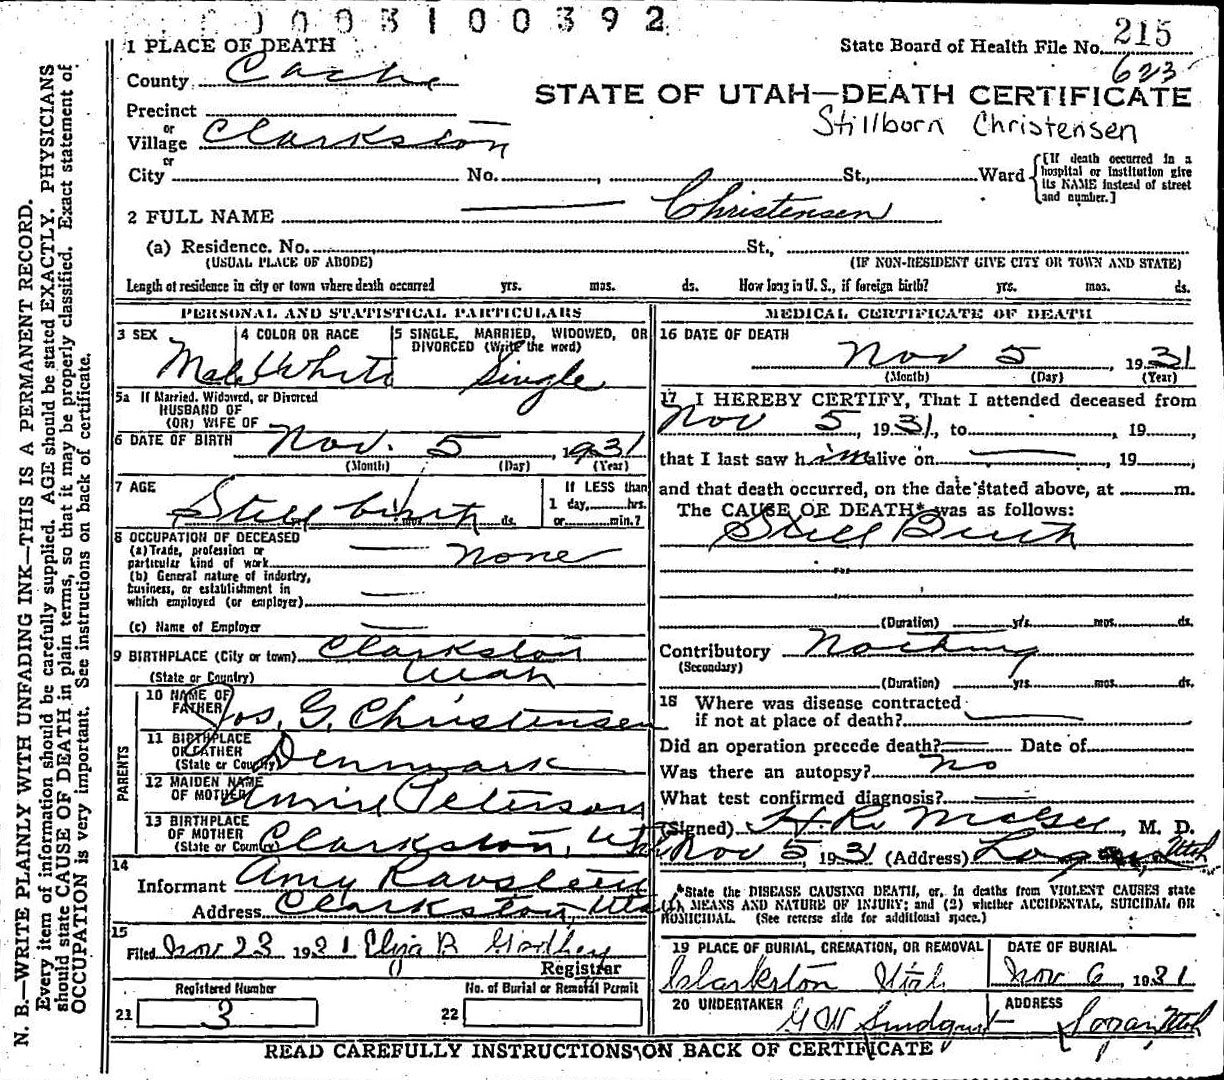 0003100392
1 PLACE OF DEATH
State Board of Health File No. 215
County Cache
623
STATE OF UTAH—DEATH CERTIFICATE
Precinct
or
Village Clarkston
Stillborn Christensen
or
City No. , St., Ward
[If death occurred in a hospital or institution give its NAME instead of street and number.]
2 FULL NAME — Christensen
(a) Residence. No. St.,
(USUAL PLACE OF ABODE) (IF NON-RESIDENT GIVE CITY OR TOWN AND STATE)
Length of residence in city or town where death occurred yrs. mos. ds. How long in U. S., if foreign birth? yrs. mos. ds.
PERSONAL AND STATISTICAL PARTICULARS
3 SEX 4 COLOR OR RACE 5 SINGLE, MARRIED, WIDOWED, OR
DIVORCED (Write the word)
Male White Single
5a If Married, Widowed, or Divorced
HUSBAND OF
(OR) WIFE OF
6 DATE OF BIRTH Nov. 5, 1931
(Month) (Day) (Year)
7 AGE If LESS than
Still birth mos. ds. 1 day, hrs.
or min.?
8 OCCUPATION OF DECEASED
(a) Trade, profession or
particular kind of work — none
(b) General nature of industry,
business, or establishment in
which employed (or employer) —
(c) Name of Employer —
9 BIRTHPLACE (City or town) Clarkston
(State or Country) Utah
PARENTS
10 NAME OF
FATHER Jos. G. Christensen
11 BIRTHPLACE
OF FATHER
(State or Country) Denmark
12 MAIDEN NAME
OF MOTHER Annie Peterson
13 BIRTHPLACE
OF MOTHER
(State or Country) Clarkston, Utah
14
Informant Amy Ravsten
Address Clarkston, Utah
15
Filed Nov 23 1931 Eliza B Godfrey
Registrar
Registered Number No. of Burial or Removal Permit
21 3 22
MEDICAL CERTIFICATE OF DEATH
16 DATE OF DEATH
Nov 5, 1931
(Month) (Day) (Year)
17 I HEREBY CERTIFY, That I attended deceased from
Nov 5, 1931, to , 19 ,
that I last saw him alive on — , 19 ,
and that death occurred, on the date stated above, at m.
The CAUSE OF DEATH* was as follows:
Still Birth
(Duration) yrs. mos. ds.
Contributory Nothing
(Secondary)
(Duration) yrs. mos. ds.
18 Where was disease contracted
if not at place of death? —
Did an operation precede death? — Date of
Was there an autopsy? no
What test confirmed diagnosis? —
(Signed) H. R. McGee, M. D.
Nov 5, 1931 (Address) Logan Utah
*State the DISEASE CAUSING DEATH, or, in deaths from VIOLENT CAUSES state
(1), MEANS AND NATURE OF INJURY; and (2) whether ACCIDENTAL, SUICIDAL OR
HOMICIDAL. (See reverse side for additional space.)
19 PLACE OF BURIAL, CREMATION, OR REMOVAL DATE OF BURIAL
Clarkston Utah Nov 6, 1931
20 UNDERTAKER ADDRESS
G W Lindquist Logan, Utah
READ CAREFULLY INSTRUCTIONS ON BACK OF CERTIFICATE
N. B.—WRITE PLAINLY WITH UNFADING INK—THIS IS A PERMANENT RECORD.
Every item of information should be carefully supplied. AGE should be stated EXACTLY. PHYSICIANS
should state CAUSE OF DEATH in plain terms, so that it may be properly classified. Exact statement of
OCCUPATION is very important. See instructions on back of certificate.